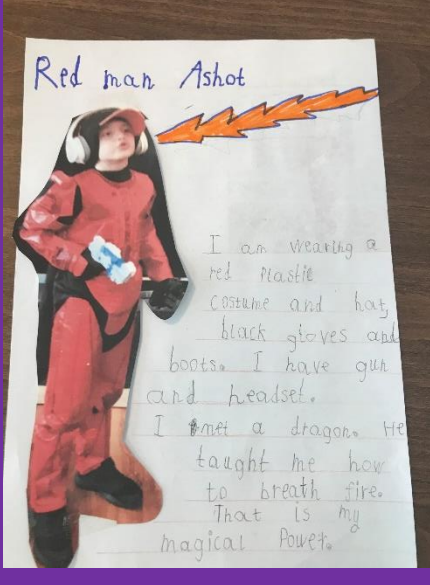 Red man Ashot
I am wearing a
red plastic
costume and hat,
black gloves and
boots. I have gun
and headset.
I met a dragon. He
taught me how
to breath fire.
That is my
magical Power.